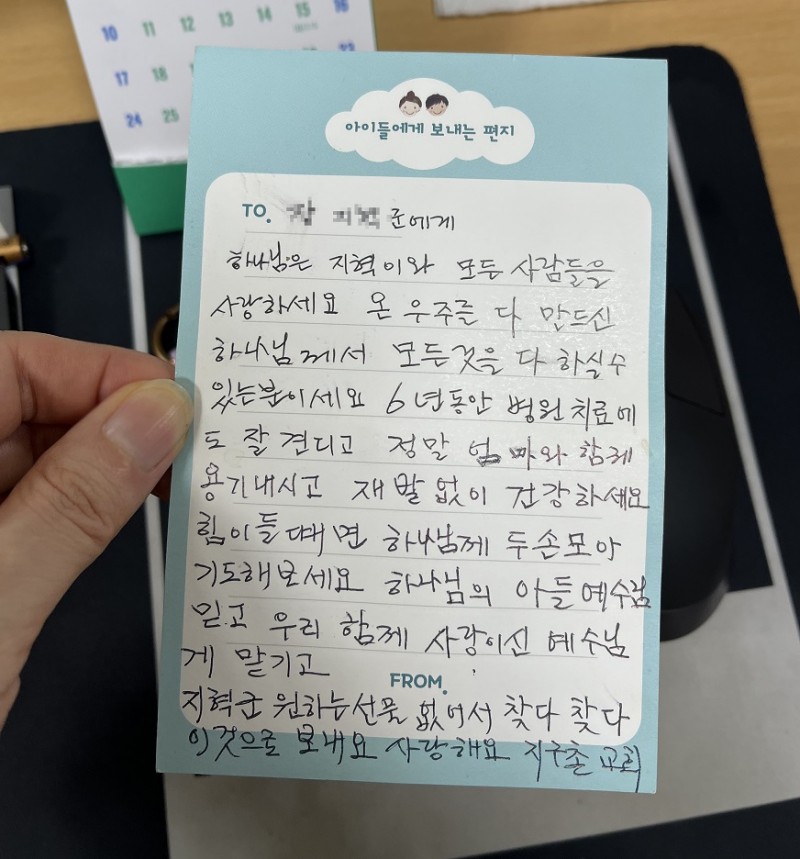 10 11 12 13 14 15 16
17 18
24 25
아이들에게 보내는 편지
TO. 군에게
하나님은 지혁이와 모든 사람들을
사랑하세요 온 우주를 다 만드신
하나님께서 모든것을 다 하실수
있는분이세요 6년동안 병원치료에
도 잘 견디고 정말 엄마와 함께
용기내시고 재발없이 건강하세요
힘이들때면 하나님께 두손모아
기도해보세요 하나님의 아들 예수님
믿고 우리 함께 사랑이신 예수님
게 맡기고
FROM.
지혁군 원하는선물 없어서 찾다 찾다
이것으로 보내요 사랑해요 지구촌 교회